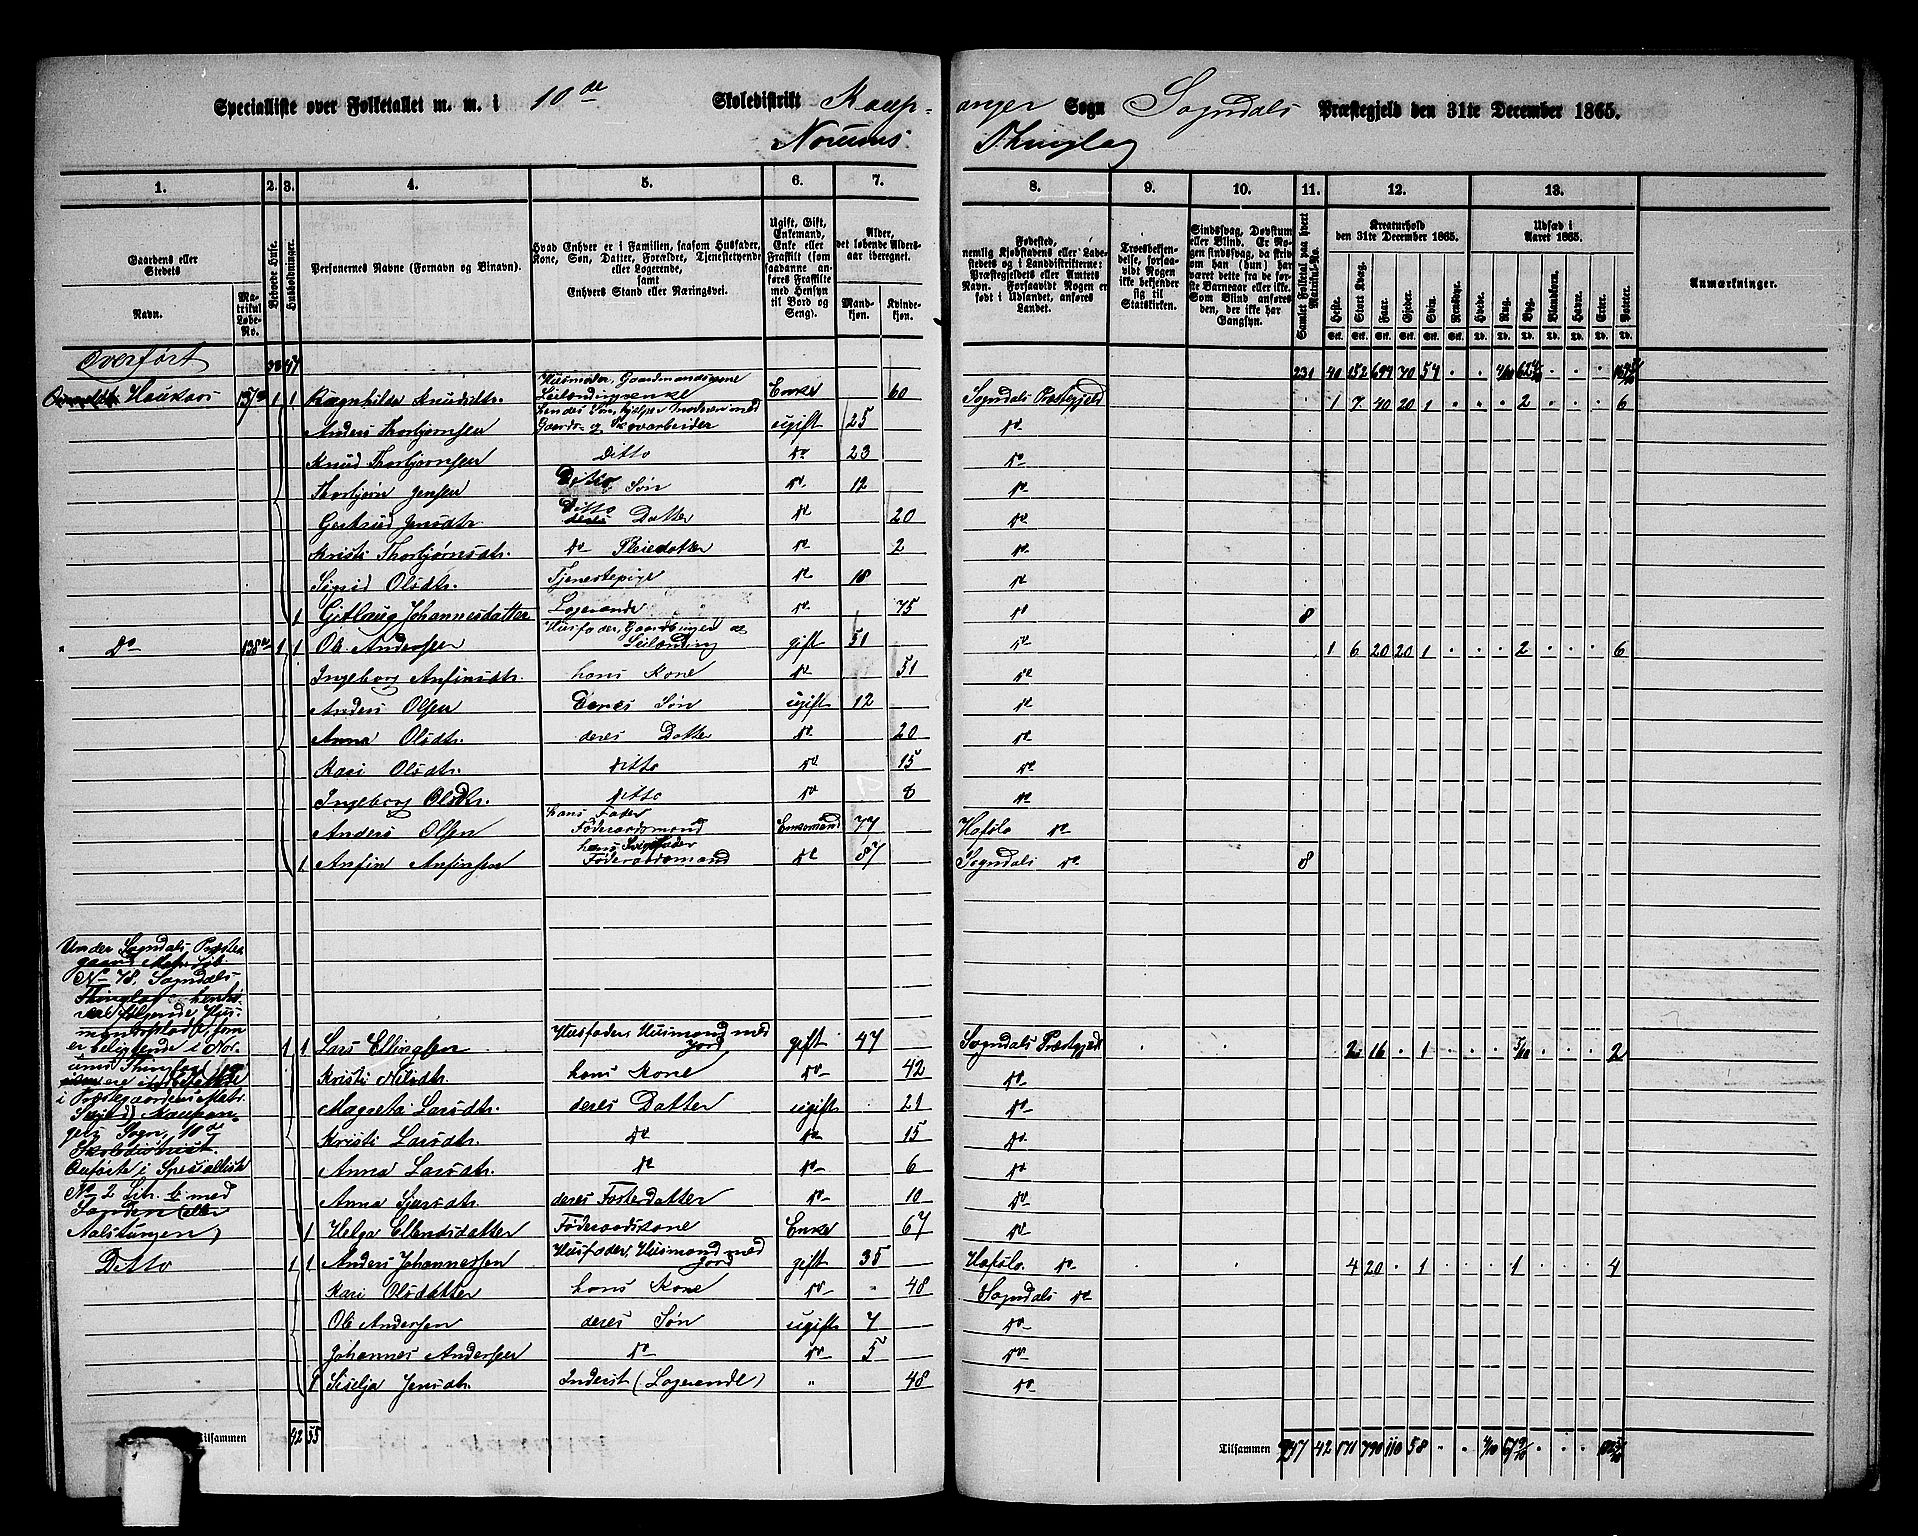 Specialliste over Folketallet m. m. i 10de Skoledistrikt Kaup-anger Sogn Sogndals Præstegjeld den 31te December 1865.
Norums Thinglag
1. 2. 3. 4. 5. 6. 7. 8. 9. 10. 11. 12. 13.
Gaardens eller Stedets
Navn.
Matrikul Løbe-No.
Beboede Huse.
Husholdninger.
Personernes Navne (Fornavn og Binavn).
Hvad Enhver er i Familien, saasom Husfader, Kone, Søn, Datter, Forældre, Tjenestetyende eller Logerende, samt Enhvers Stand eller Næringsvei.
Ugift, Gift, Enkemand, Enke eller Fraskilt (som saadanne anføres Fraskilte med Hensyn til Bord og Seng).
Alder, det løbende Alders-aar iberegnet.
Mand-kjøn. Kvinde-kjøn.
Fødested, nemlig Kjøbstadens eller Ladestedets og i Landdistrikterne: Præstegjeldets eller Amtets Navn. Forsaavidt Nogen er født i Udlandet, anføres Landet.
Troesbekjendelse, forsaavidt Nogen ikke bekjender sig til Statskirken.
Sindssvag, Døvstum eller Blind. Er Nogen sindssvag, da skrives om han (hun) har været dette fra de første Barneaar eller ikke. Som Blind anføres den, der ikke har Gangsyn.
Samlet Folketal paa hvert Matrikul-No.
Kreaturhold den 31te December 1865.
Heste. Stort Kvæg. Faar. Gjeder. Svin. Rensdyr.
Udsæd i Aaret 1865.
Hvede. Rug. Byg. Blandkorn. Havre. Erter. Poteter.
Anmærkninger.
Overført 47 231 40 152 699 70 54
Haukaas 137a 1 1 Ragnhilda Knudsdtr. Husmoder, Gaardmandsenke Leilændingsenke Enke 60 Sogndals Præstegjeld 1 7 40 20 1 2 6
Anders Thorbjørnsen hendes Søn, hjælper Moderen med Gaards- og Skovarbeider ugift 25 do
Knud Thorbjørnsen Ditto do 23 do
Thorbjørn Jensen Ditto Søn do 12 do
Gertrud Jensdtr. Ditto deres Datter do 20 do
Kristi Thorbjørnsdtr. do Pleiedatter do 2 do
Sigrid Olsdtr. Tjenestepige do 18 do
1 Gitlaug Johannesdatter Logerende do 75 do 8
do 138a 1 1 Ole Andersen Husfader, Gaardbruger og Leilænding gift 51 do 1 6 20 20 1 2 6
Ingeborg Anfinsdtr. hans Kone do 51 do
Anders Olsen Deres Søn ugift 12 do
Anna Olsdtr. deres Datter do 20 do
Kari Olsdtr. ditto do 15 do
Ingeborg Olsdtr. ditto do 8 do
Anders Olsen hans Fader Føderaadsmand Enkemand 77 Hafslo do
1 Anfin Anfinsen hans Svigefader Føderaadsmand do 87 Sogndals do 8
Under Sogndals Præste-
gaard Matr. Løb.
No 78. Sogndals
Thinglag henhø-
rer følgende Hus-
mandspladse, som
er beliggende i Nor-
ums Thinglag
i Præstegaardens Matr.
Skyld) Kaupan-
gers Sogn, 10de
Skoledistrict.
Anførte i Specialliste
No 2 Litr. b med
Sanden (eller
Nalstangen)
1 1 Lars Ellingsen Husfader, Husmand med Jord gift 47 Sogndals Præstegjeld 2 16 1 3/10 2
Kristi Nilsdtr. hans Kone do 42 do
Magreta Larsdtr. deres Datter ugift 21 do
Kristi Larsdtr. do do 15 do
Anna Larsdtr. do do 6 do
Anna Sjursdtr. deres Fosterdatter do 10 do
1 Helga Ellendsdatter Føderaadskone Enke 67 do
Ditto 1 1 Anders Johannessen Husfader, Husmand med Jord gift 35 Hafslo do 4 20 1 1 4
Kari Olsdatter hans Kone do 48 Sogndals do
Ole Andersen deres Søn ugift 7 do
Johannes Andersen do do 5 do
1 Siselja Jensdtr. Inderst (Logerende) 48 do
Tilsammen 42 55 Tilsammen 247 42 171 790 110 58 4/10 67 9/10